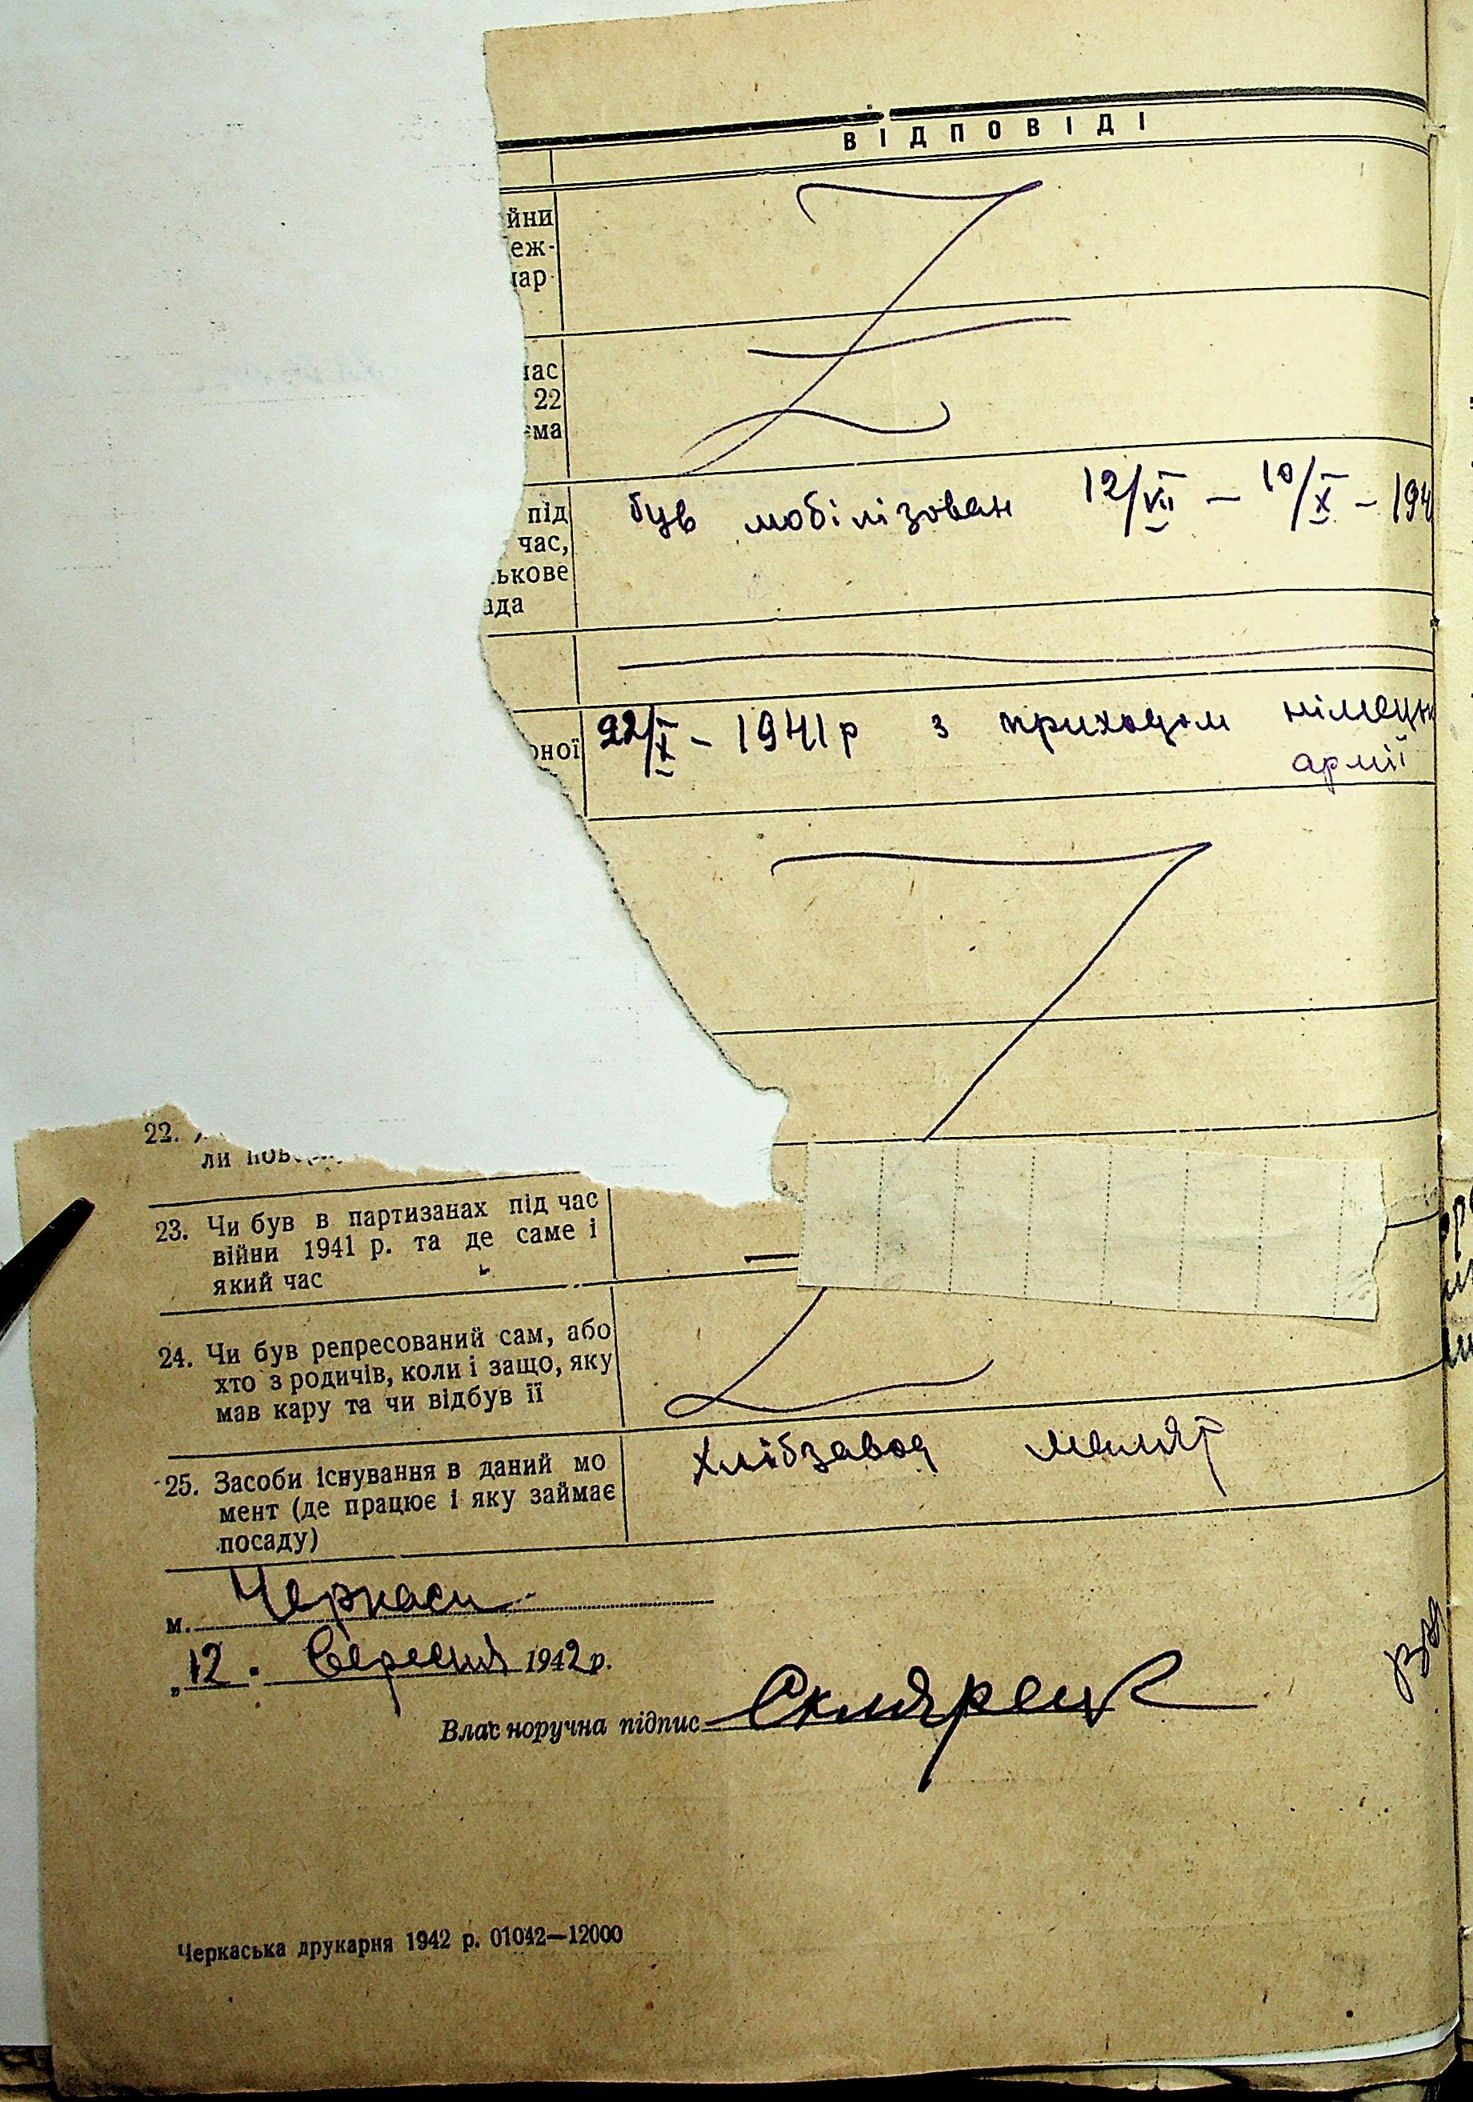 ВІДПОВІДІ
йни
еж-
нар-
час
22
ема
був мобілізован 12/VII – 10/X – 194
під
час,
ькове
ада
22/X – 1941 р з приходом німецьк
армії
оної
22.
ли пов
23. Чи був в партизанах під час
війни 1941 р. та де саме і
який час
24. Чи був репресований сам, або
хто з родичів, коли і защо, яку
мав кару та чи відбув її
25. Засоби існування в даний мо
мент (де працює і яку займає
посаду)
Хлібзавод
м. Черкаси
„12" Вересня 1942 р.
Власноручна підпис
Черкаська друкарня 1942 р. 01042—12000